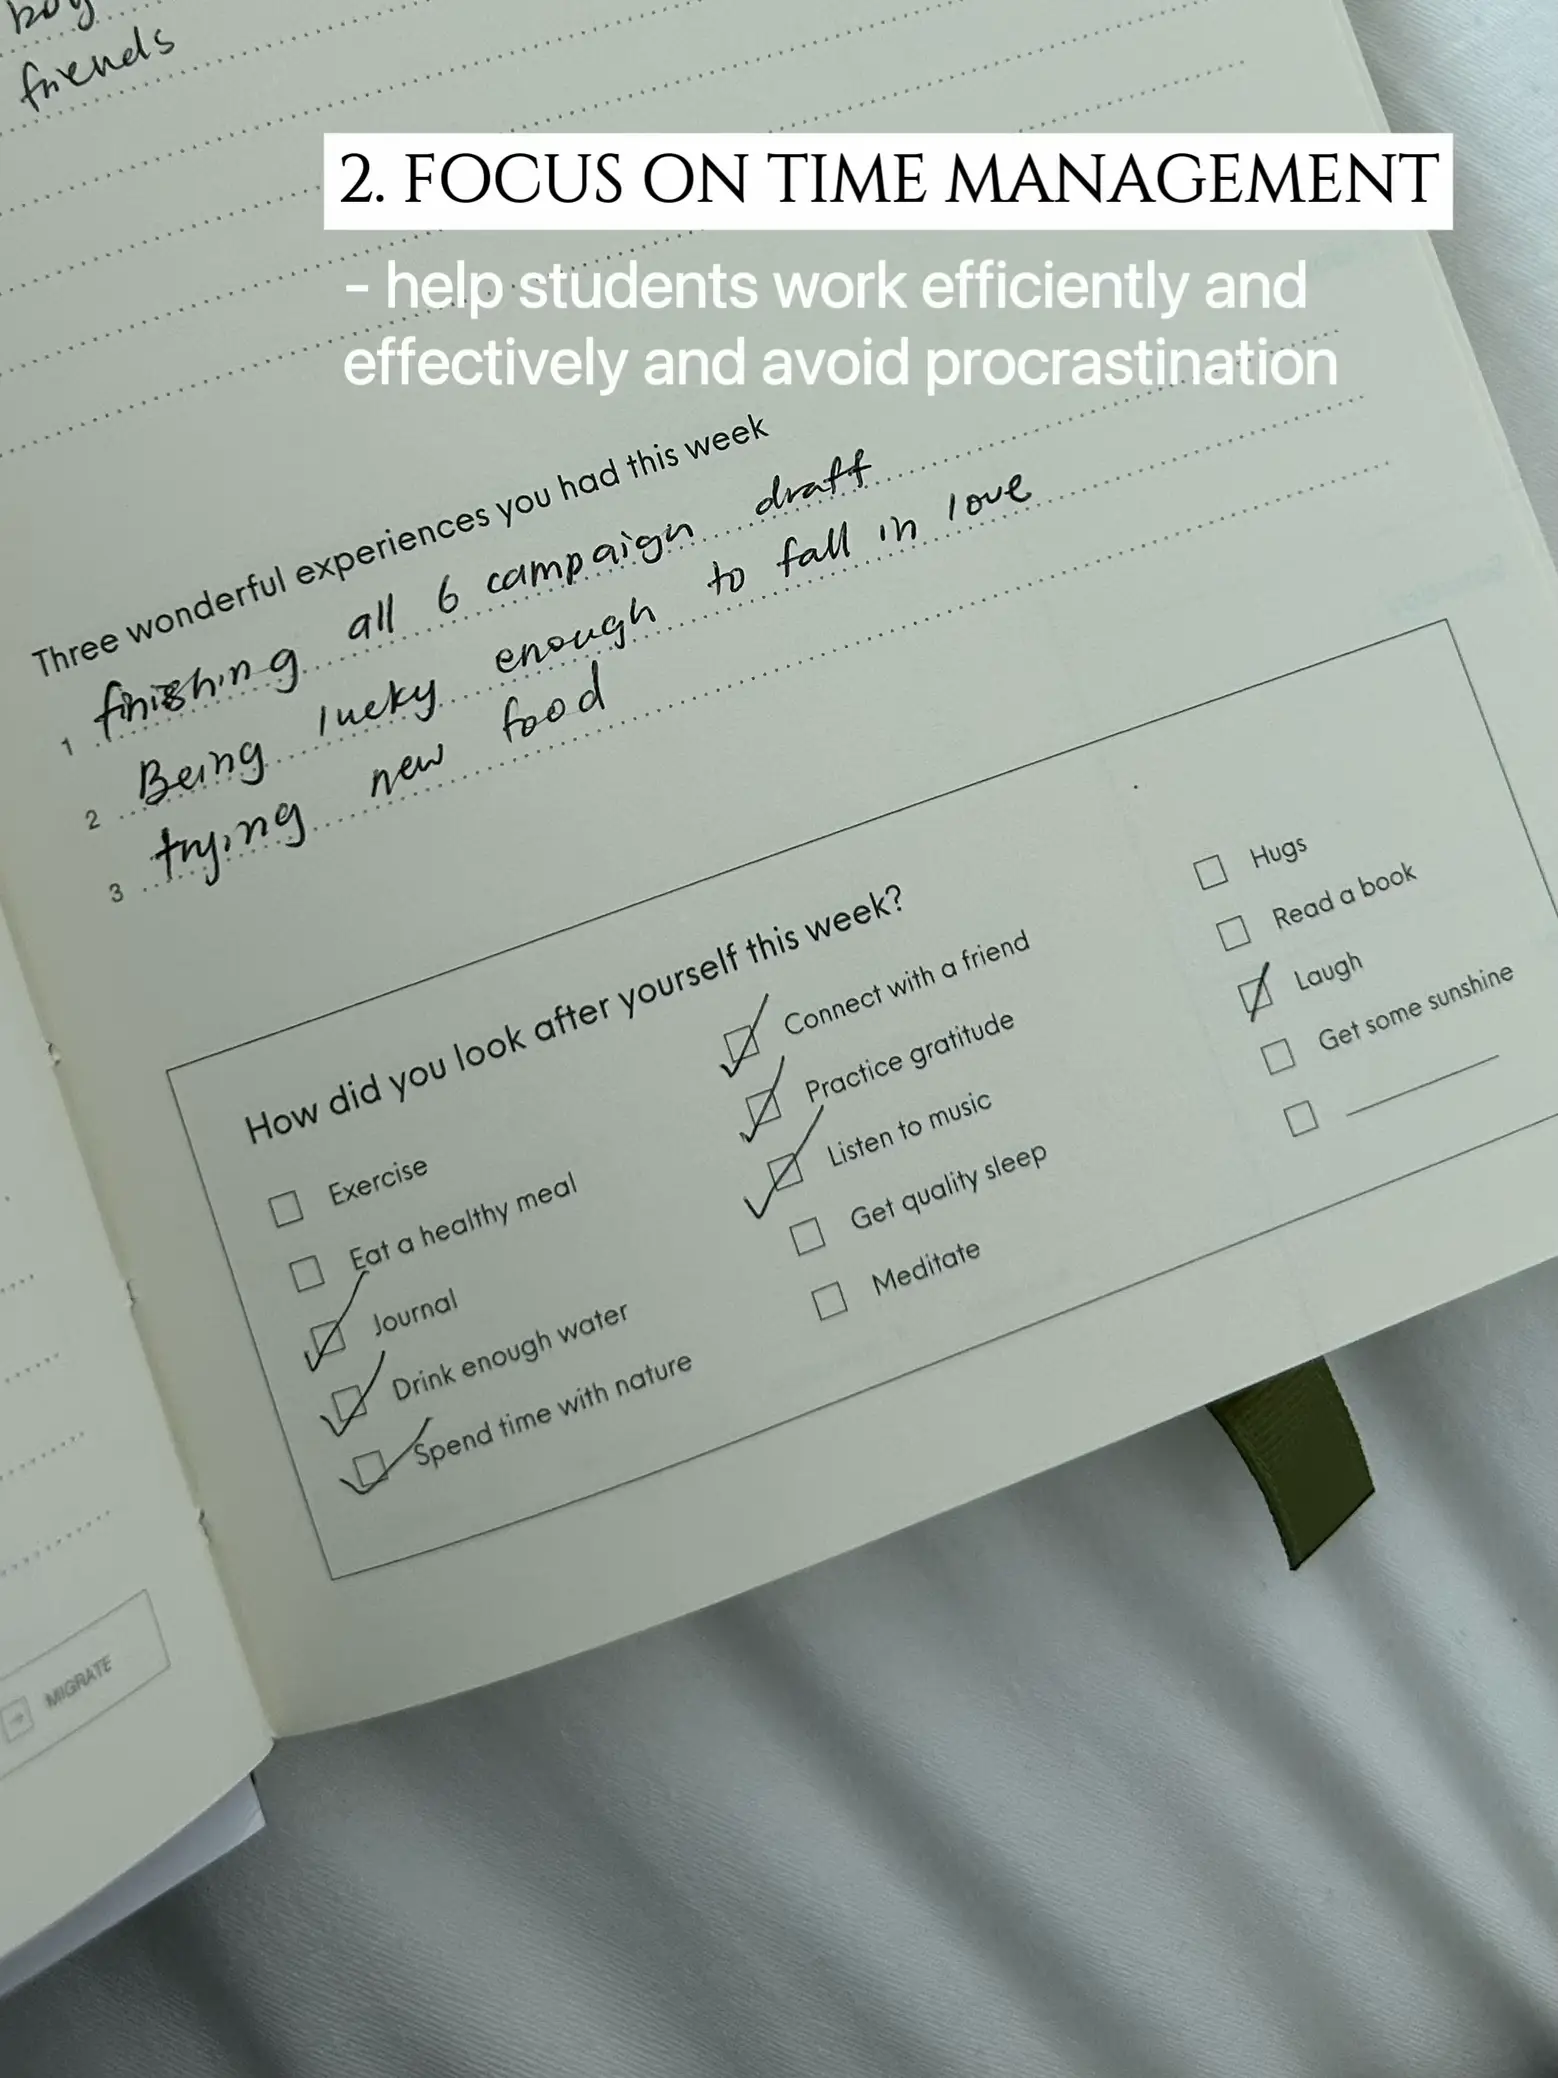 boy
friends
2. FOCUS ON TIME MANAGEMENT
- help students work efficiently and
effectively and avoid procrastination
Three wonderful experiences you had this week
1 finishing all 6 campaign draft
2 Being lucky enough to fall in love
3 trying new food
How did you look after yourself this week?
Exercise
Eat a healthy meal
Journal
Drink enough water
Spend time with nature
Connect with a friend
Practice gratitude
Listen to music
Get quality sleep
Meditate
Hugs
Read a book
Laugh
Get some sunshine
MIGRATE